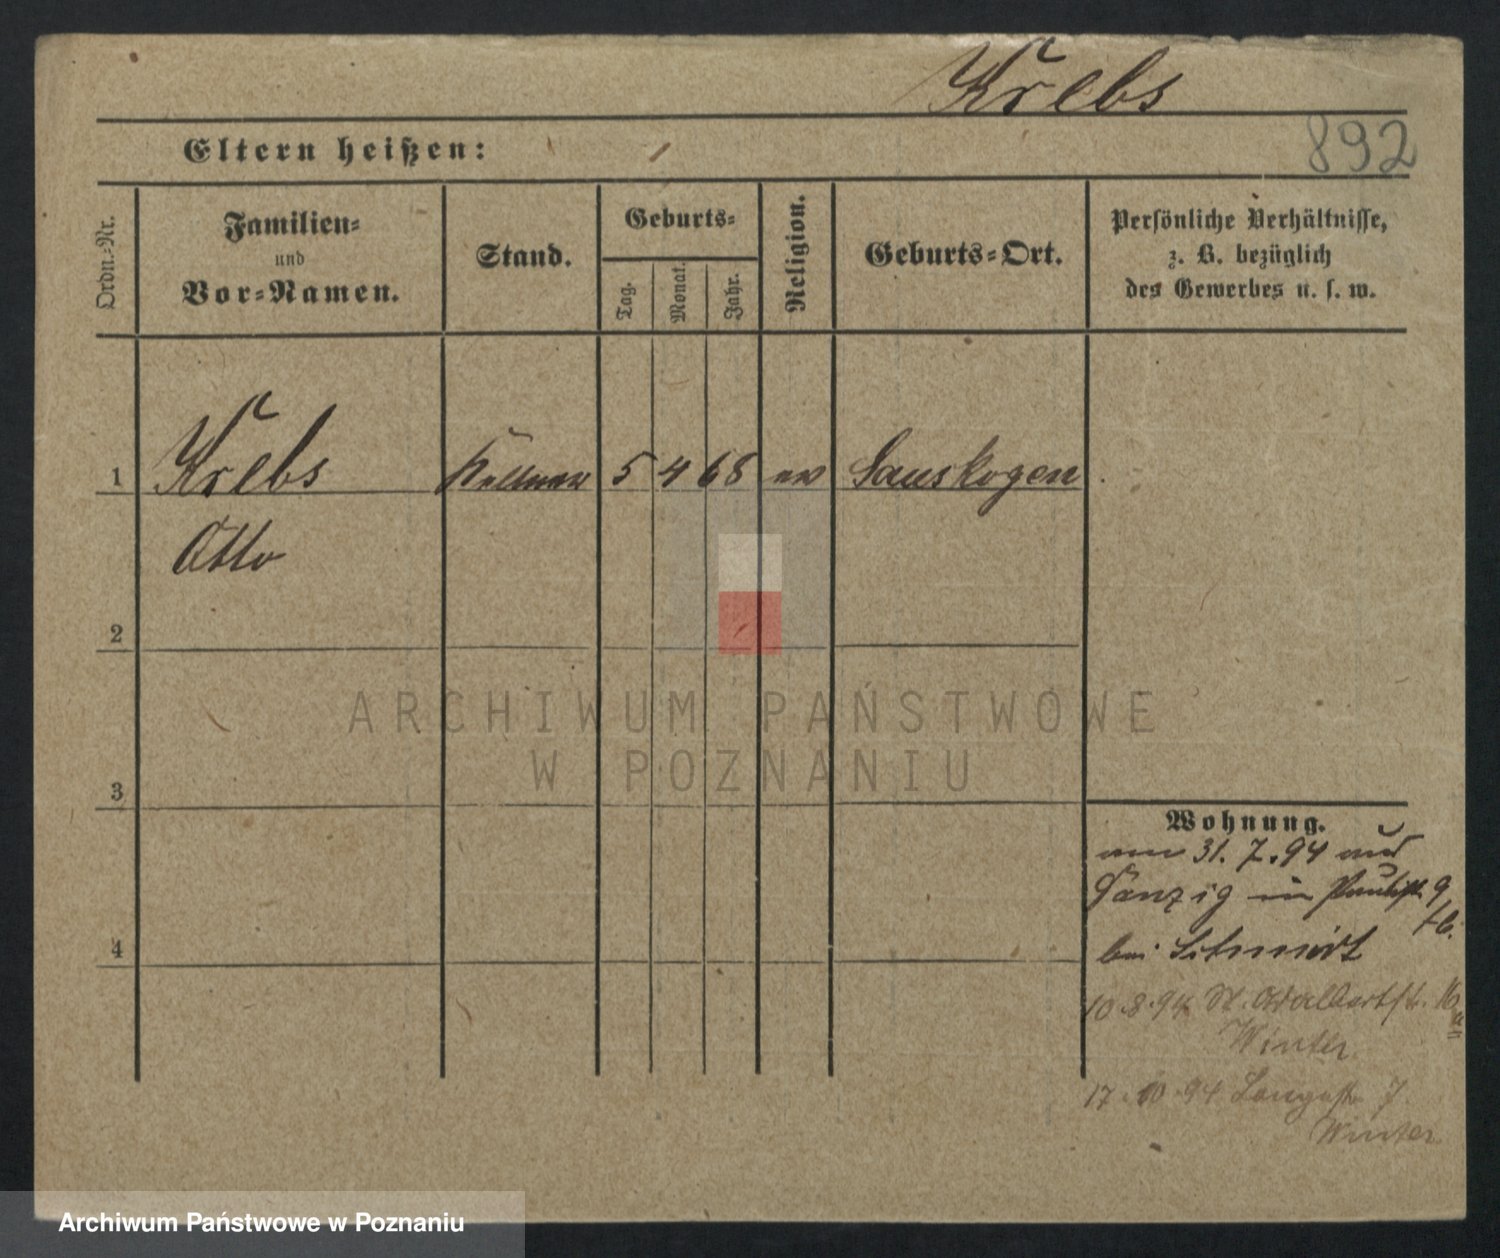 Krebs
892
Eltern heißen:
Ordn.-Nr.
Familien-
und
Vor-Namen.
Stand.
Geburts-
Tag.
Monat.
Jahr.
Religion.
Geburts-Ort.
Persönliche Verhältnisse,
z. B. bezüglich
des Gewerbes u. s. w.
1
Krebs
Kellner
5
4
68
ev
Sauskogen
Otto
2
3
4
Wohnung.
am 31. 7. 94 aus
Danzig in Paulist. 9
bei Schmidt
10.8.94 St. Adalbertstr. 16
Winter
17.10.94 Langestr 7
Winter
ARCHIWUM PAŃSTWOWE
W POZNANIU
Archiwum Państwowe w Poznaniu